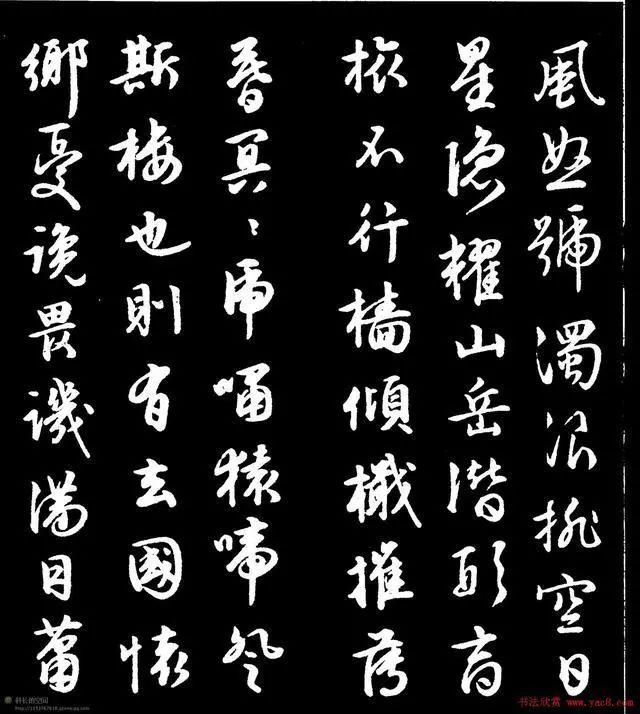 風怒號濁浪排空日
星隱耀山岳潛形商
旅不行檣傾檝摧薄
暮冥〻虎嘯猿啼登
斯樓也則有去國懷
鄉憂讒畏譏滿目蕭
科长的空间
书法欣赏 www.yac8.com